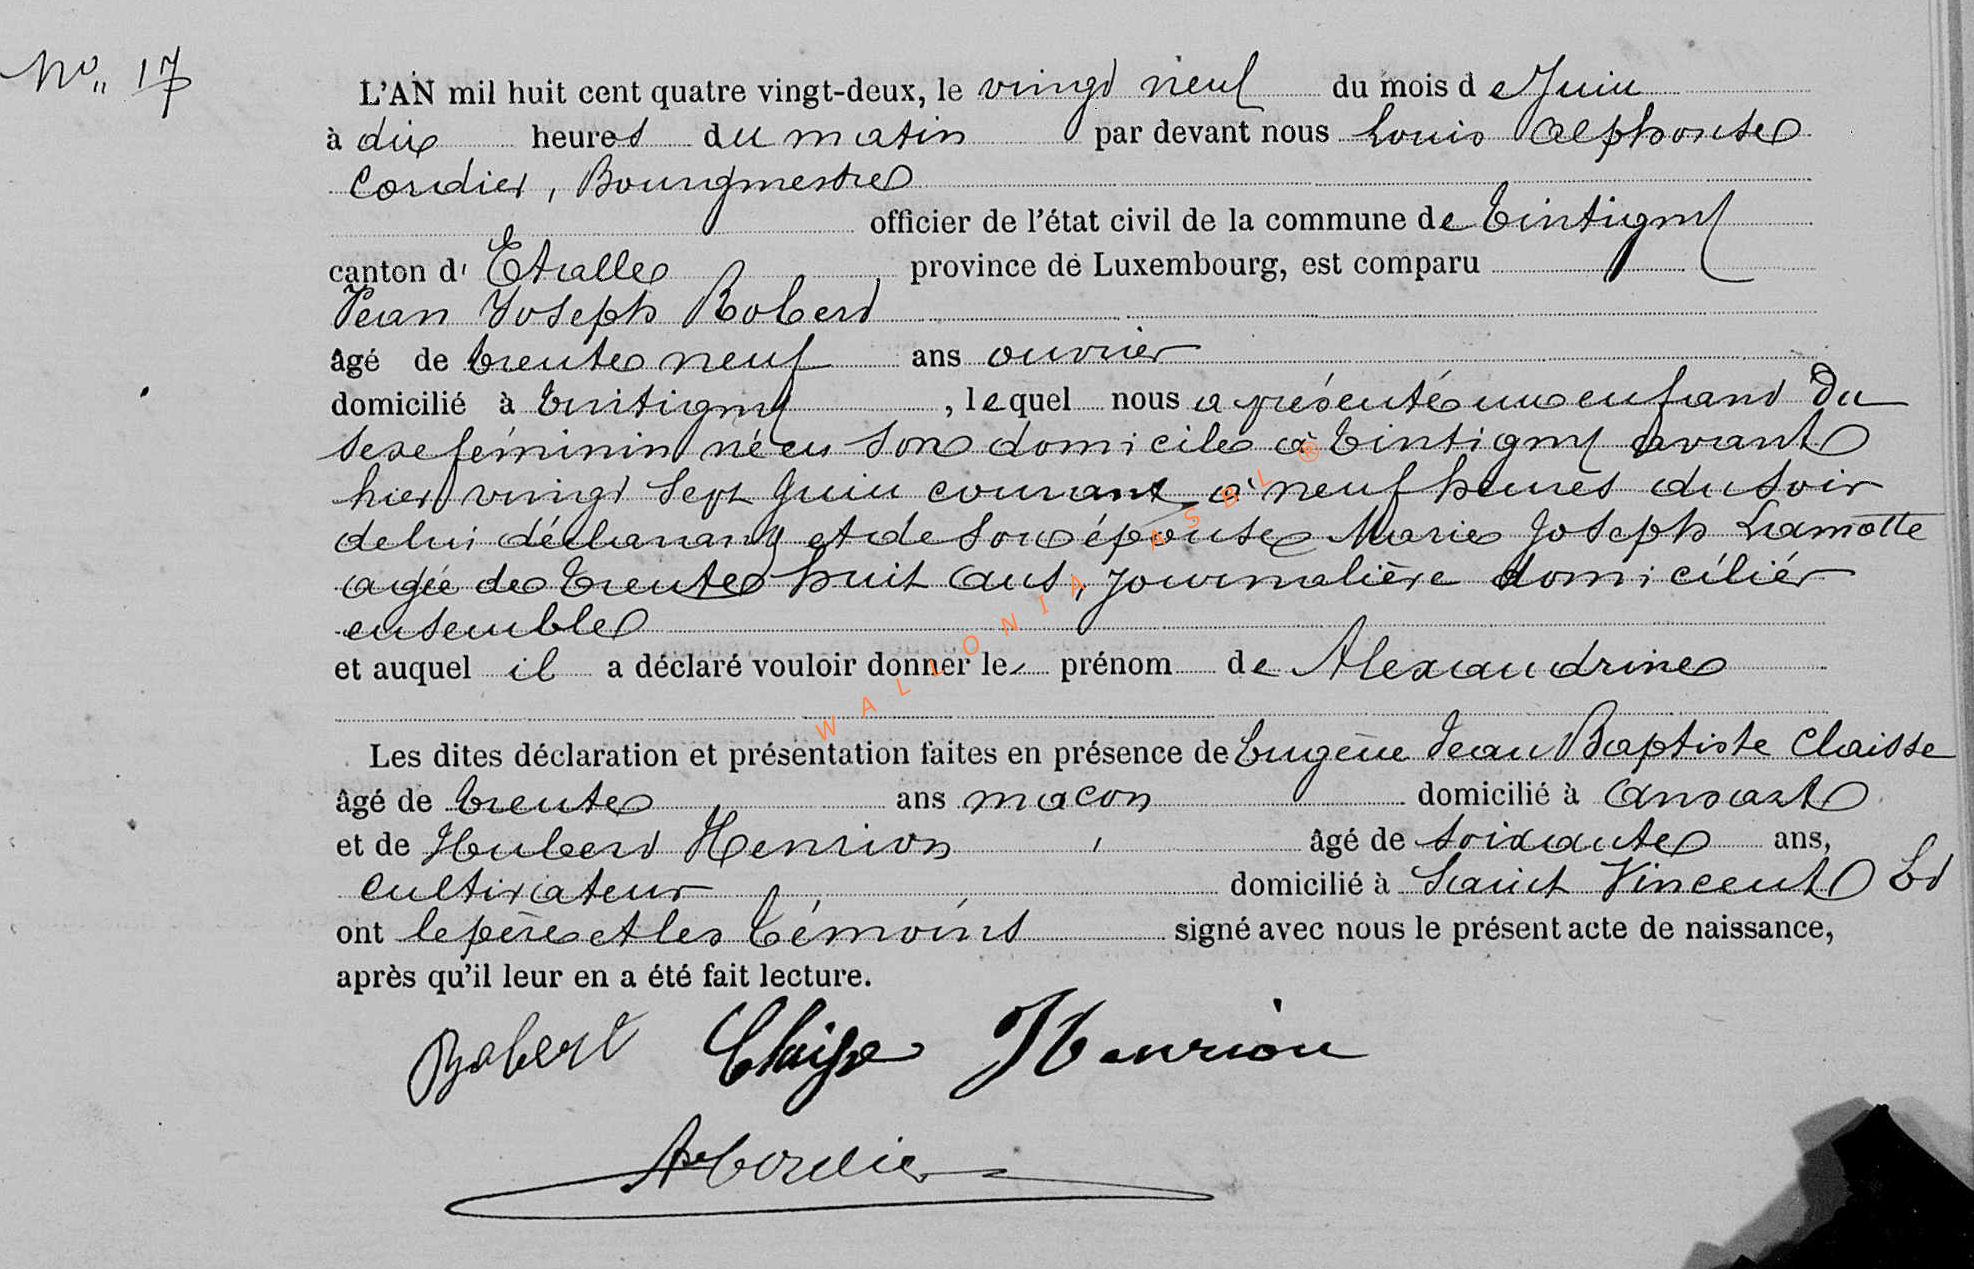 No. 17
L'AN mil huit cent quatre vingt-deux, le vingt neuf du mois de Juin
à dix heures du matin par devant nous Louis Alphonse
Cordier, Bourgmestre
officier de l'état civil de la commune de Tintigny
canton d' Etalle province de Luxembourg, est comparu
Jean Joseph Robert
âgé de trente neuf ans ouvrier
domicilié à Tintigny, lequel nous a présenté un enfant du
sexe féminin né en son domicile à Tintigny avant
hier vingt sept Juin courant à neuf heures du soir
de lui déclarant et de son épouse Marie Joseph Lamotte
agée de trente huit ans, journalière domiciliér
ensemble
et auquel il a déclaré vouloir donner le prénom de Alexandrine
Les dites déclaration et présentation faites en présence de Eugène Jean Baptiste Claisse
âgé de trente ans macon domicilié à Ansart
et de Hubert Henrion âgé de soixante ans,
cultivateur domicilié à Saint Vincent Et
ont le père et les témoins signé avec nous le présent acte de naissance,
après qu'il leur en a été fait lecture.
Robert Claisse Henrion
A Cordier
WALLONIA ASBL ®